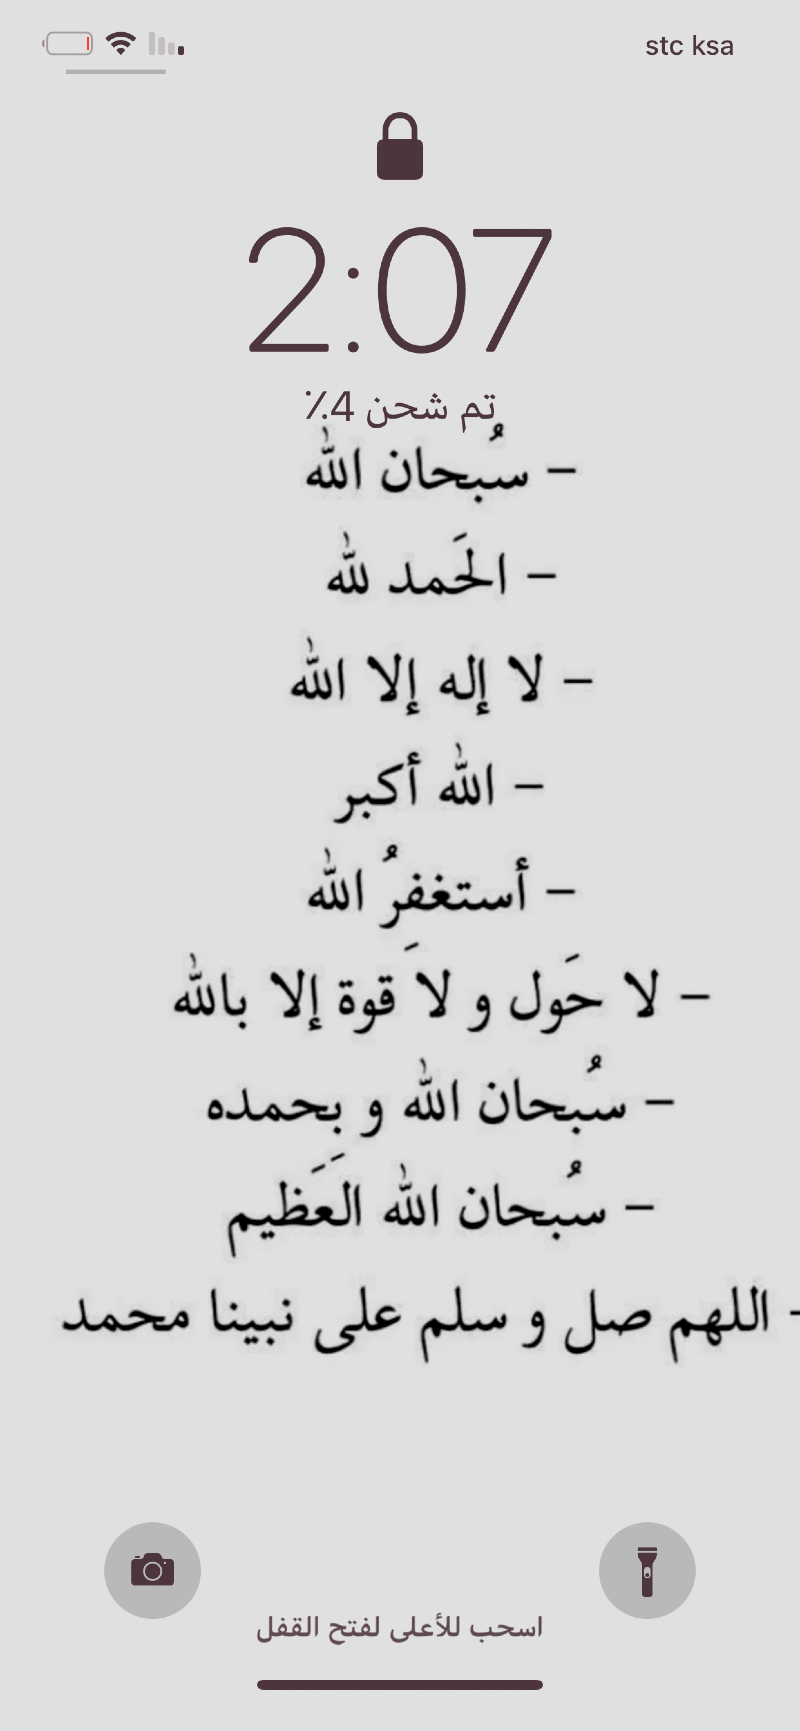 stc ksa
2:07
تم شحن 4٪
– سُبحان الله
– الحَمد لله
– لا إله إلا الله
– الله أكبر
– أستغفِرُ الله
– لا حَول و لاَ قوة إلا بالله
– سُبحان الله و بِحمده
– سُبحان الله العَظَيم
– اللهم صل و سلم على نبينا محمد
اسحب للأعلى لفتح القفل